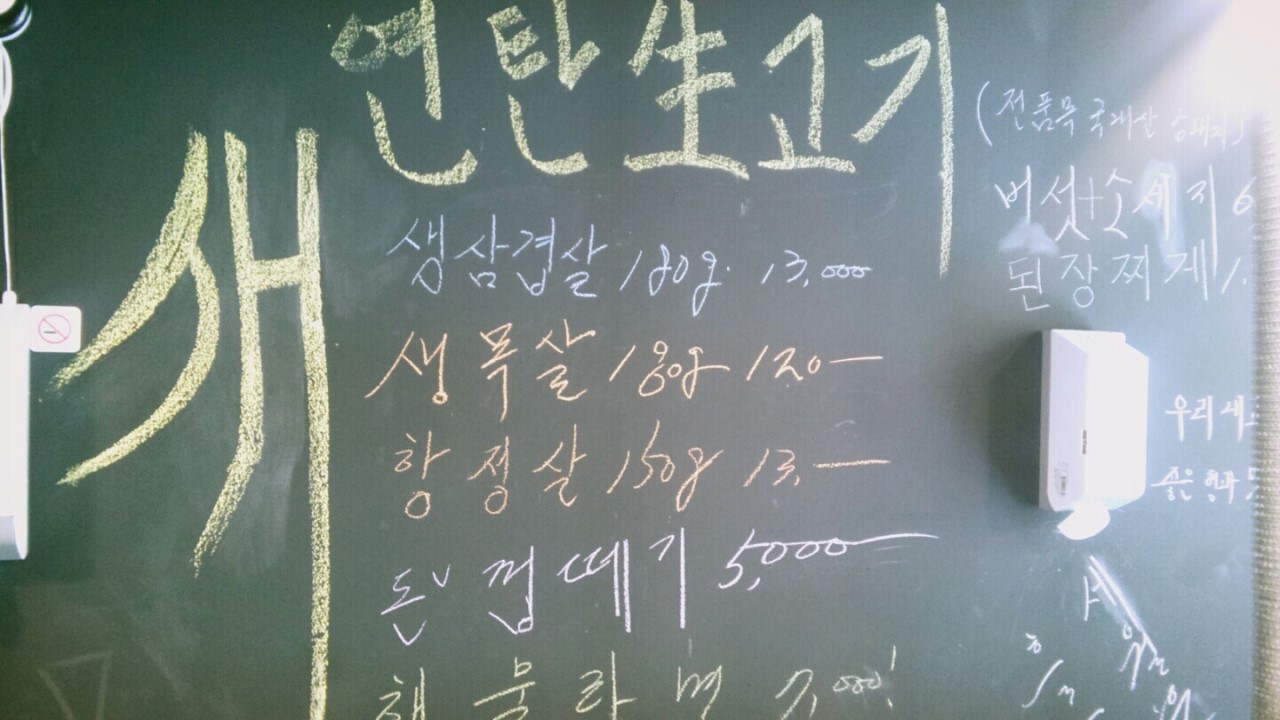 연탄生고기
새
(전품목 국내산 암퇘지)
생삼겹살 180g 13,000
생목살 180g 120
항정살 150g 13,
돈껍떼기 5,000
해물라면 7,000!
버섯+소세지 6
된장찌게 1.
우리 새